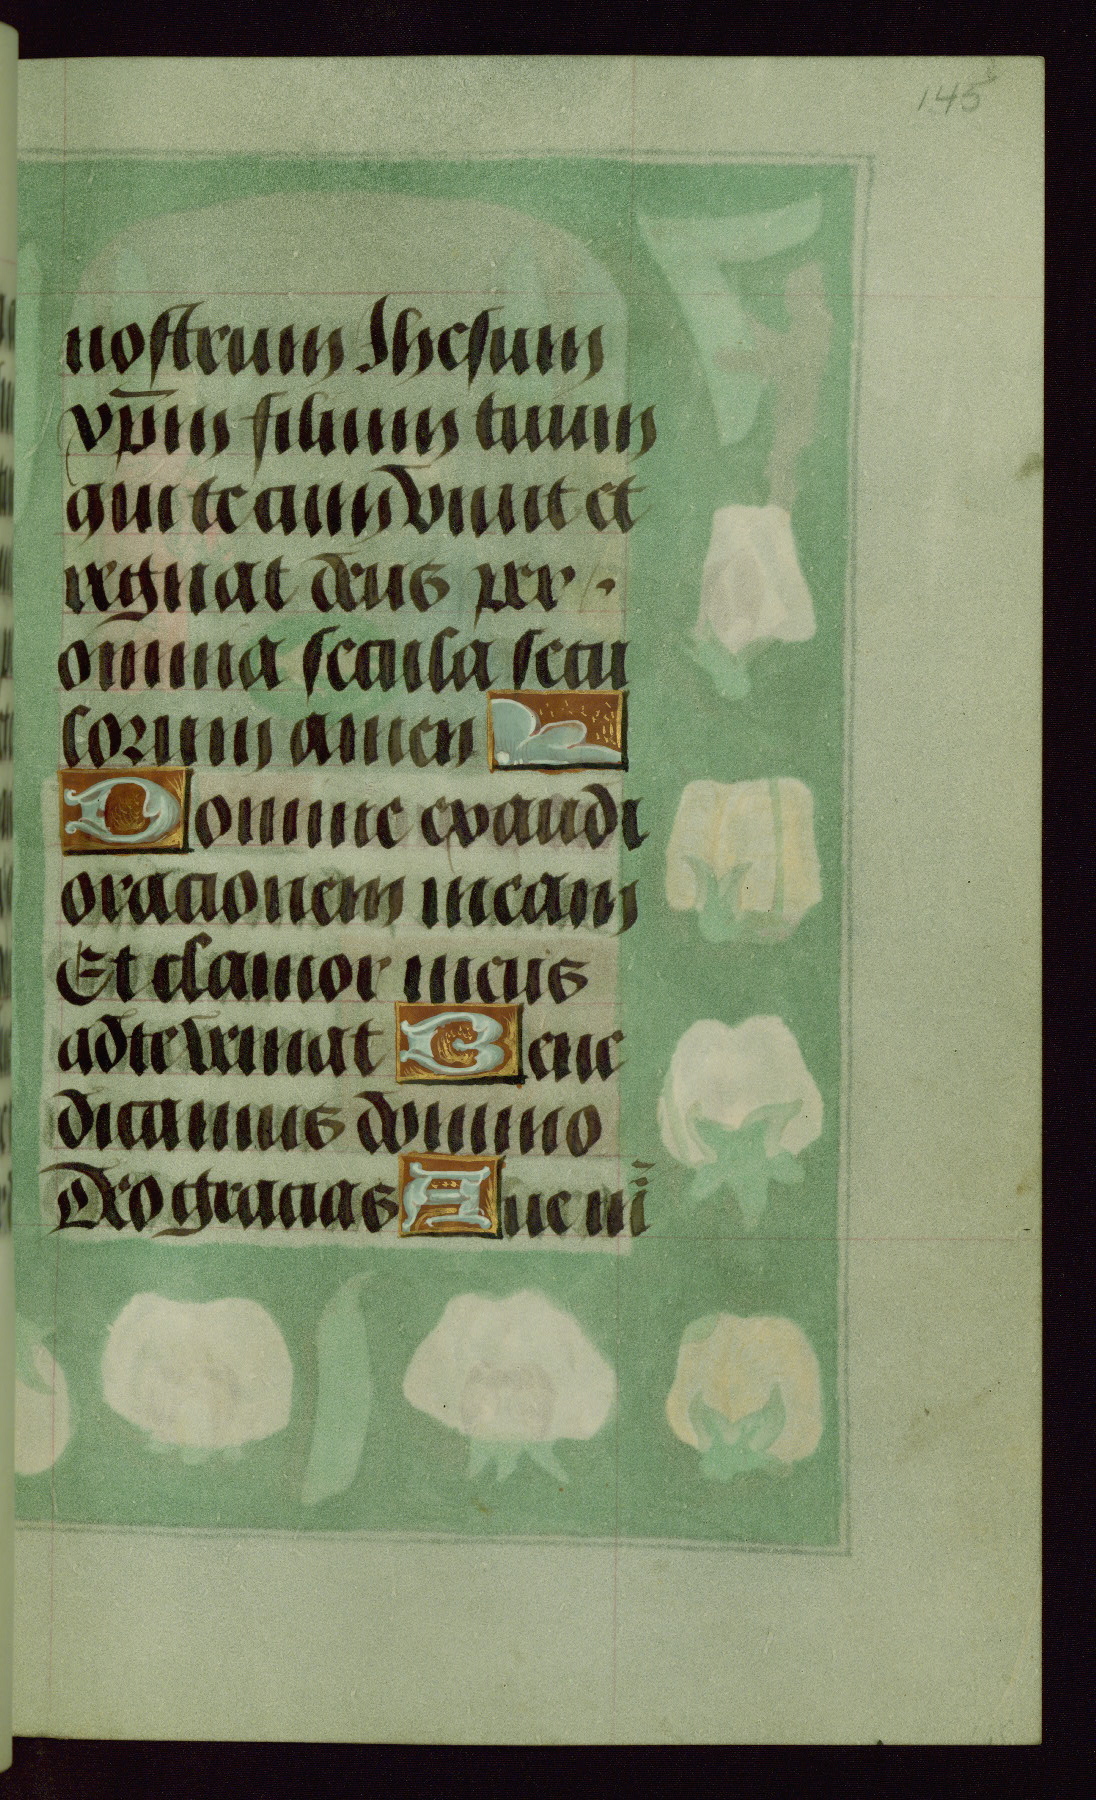 145
nostrum Jhesum
xp̄m filium tuum
qui tecum viuit et
regnat deus per ·
omnia secula secu
lorum amen
Domine exaudi
orationem meam
Et clamor meus
ad te veniat Bene
dicamus domino
Deo gratias Aue m̄